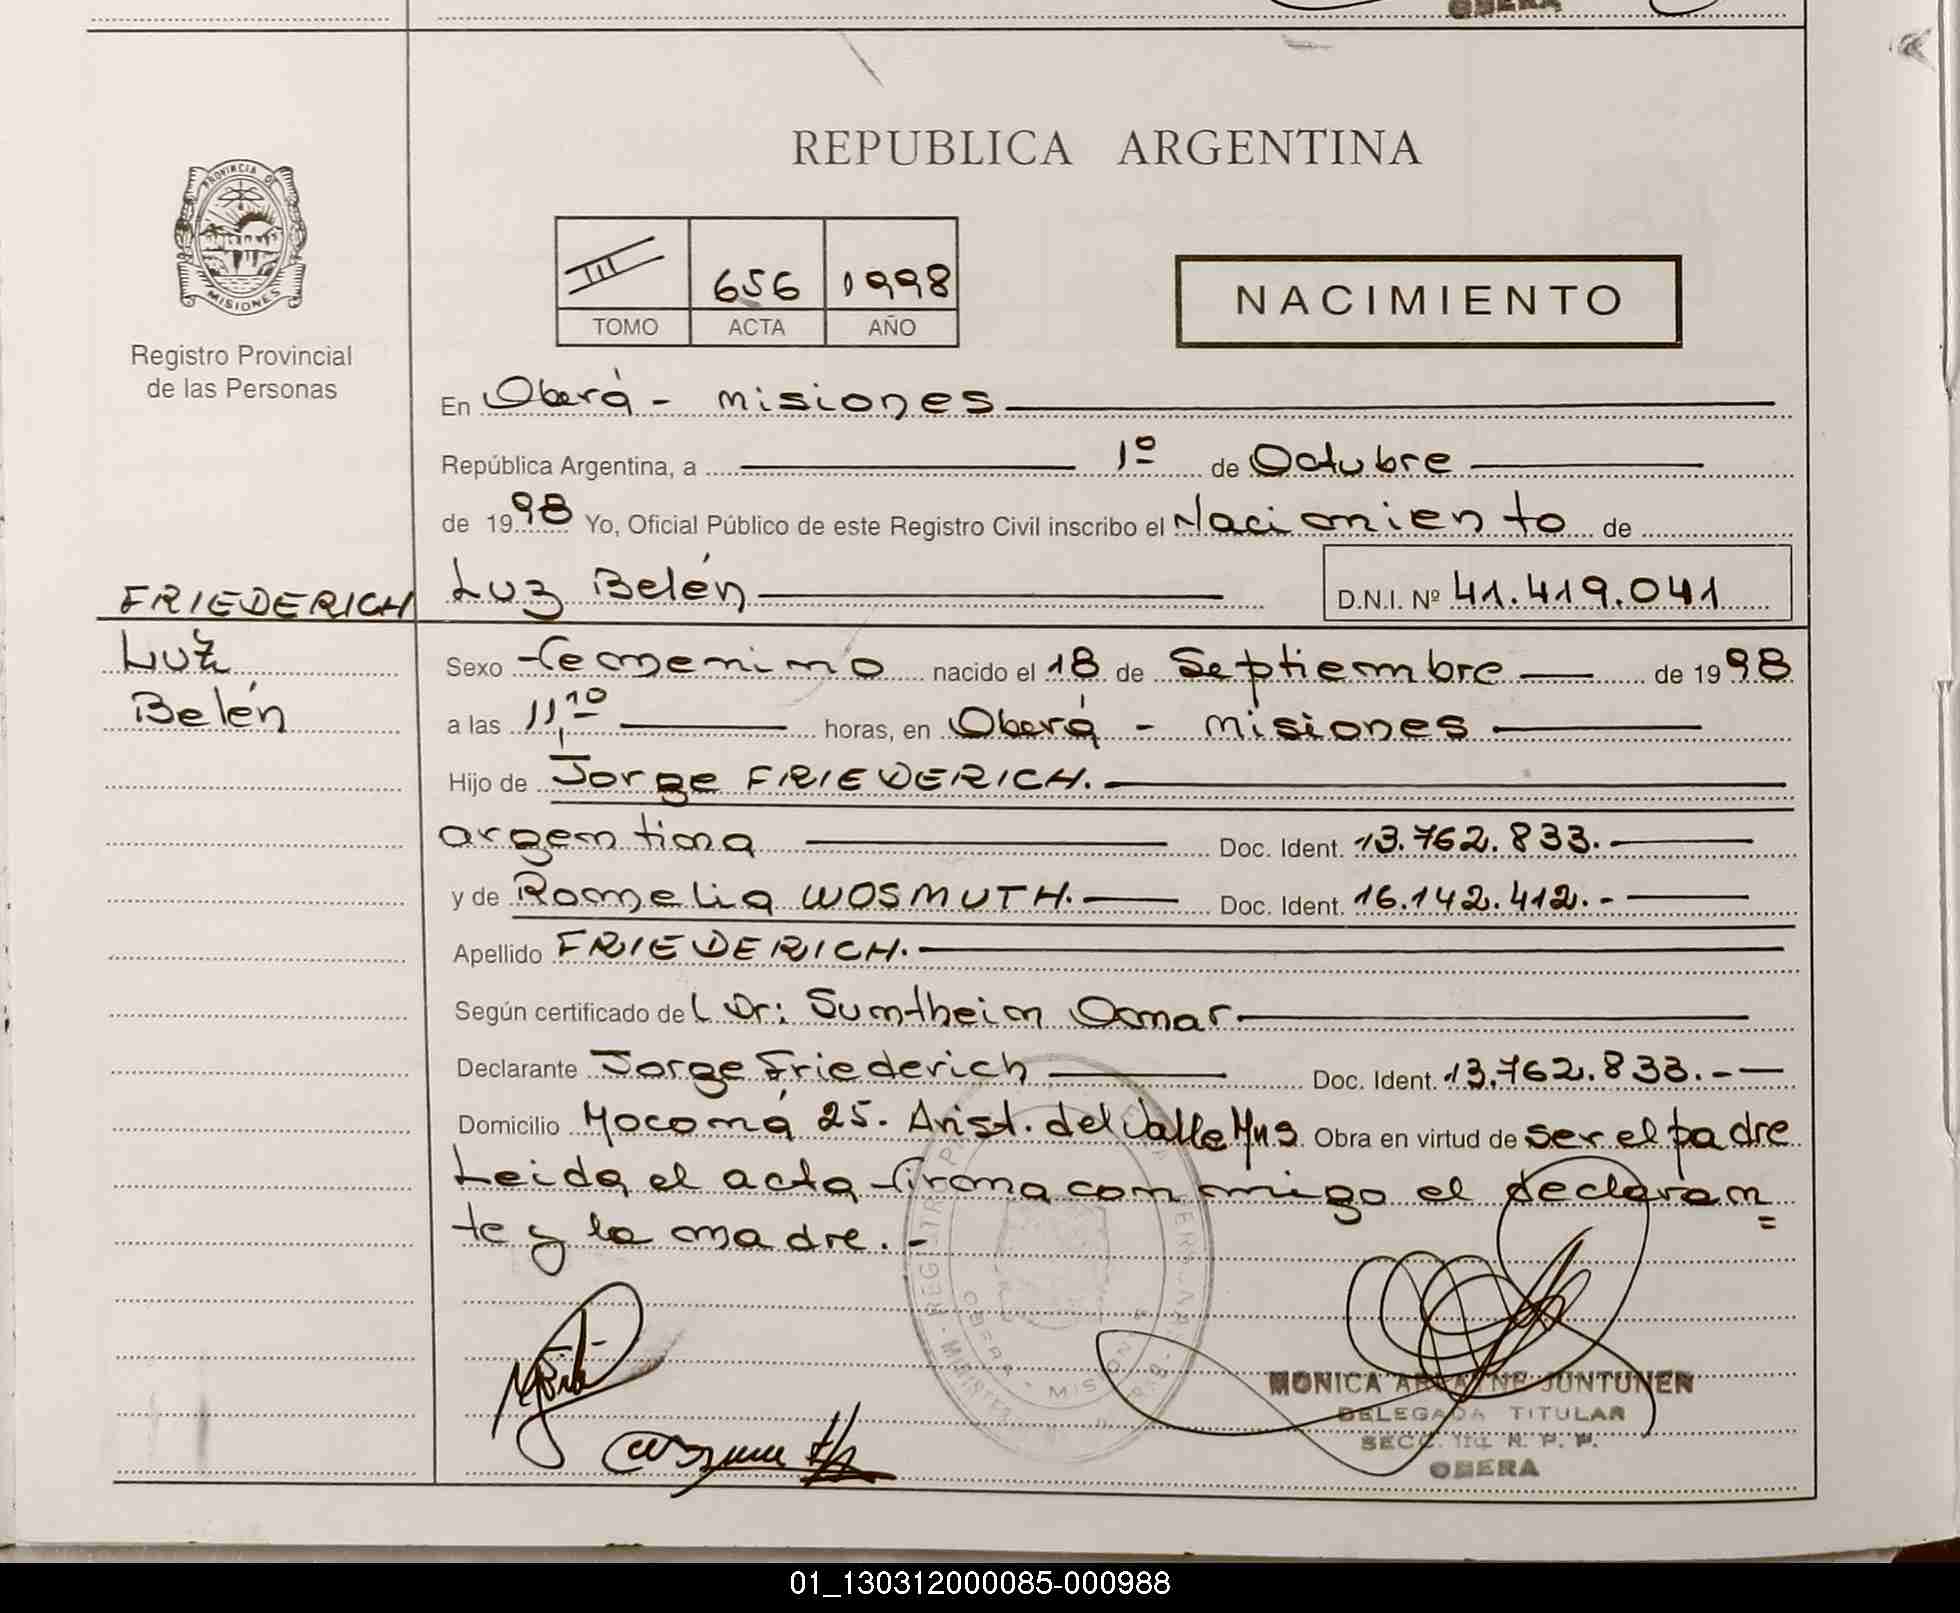 OBERA
REPUBLICA ARGENTINA
PROVINCIA D
MISIONES
Registro Provincial
de las Personas
III 656 1998
TOMO ACTA AÑO
NACIMIENTO
En Oberá - misiones
República Argentina, a 1º de Octubre
de 1998 Yo, Oficial Público de este Registro Civil inscribo el Nacimiento de
Luz Belén D.N.I. Nº 41.419.041
FRIEDERICH
Luz
Belén
Sexo femenino nacido el 18 de Septiembre de 1998
a las 11,10 horas, en Oberá - misiones
Hijo de Jorge FRIEDERICH.
argentina Doc. Ident. 13.762.833.
y de Romelia WOSMUTH. Doc. Ident. 16.142.412.-
Apellido FRIEDERICH.
Según certificado del Dr: Suntheim Omar
Declarante Jorge Friederich Doc. Ident. 13.762.833.-
Domicilio Moconá 25. Arist. del Valle Mns Obra en virtud de ser el padre
Leida el acta firma conmigo el declaran=
te y la madre.-
OBERA - MISIONES
MONICA ARIANNE JUNTUNEN
DELEGADA TITULAR
SECC. R. P. P.
OBERA
01_130312000085-000988